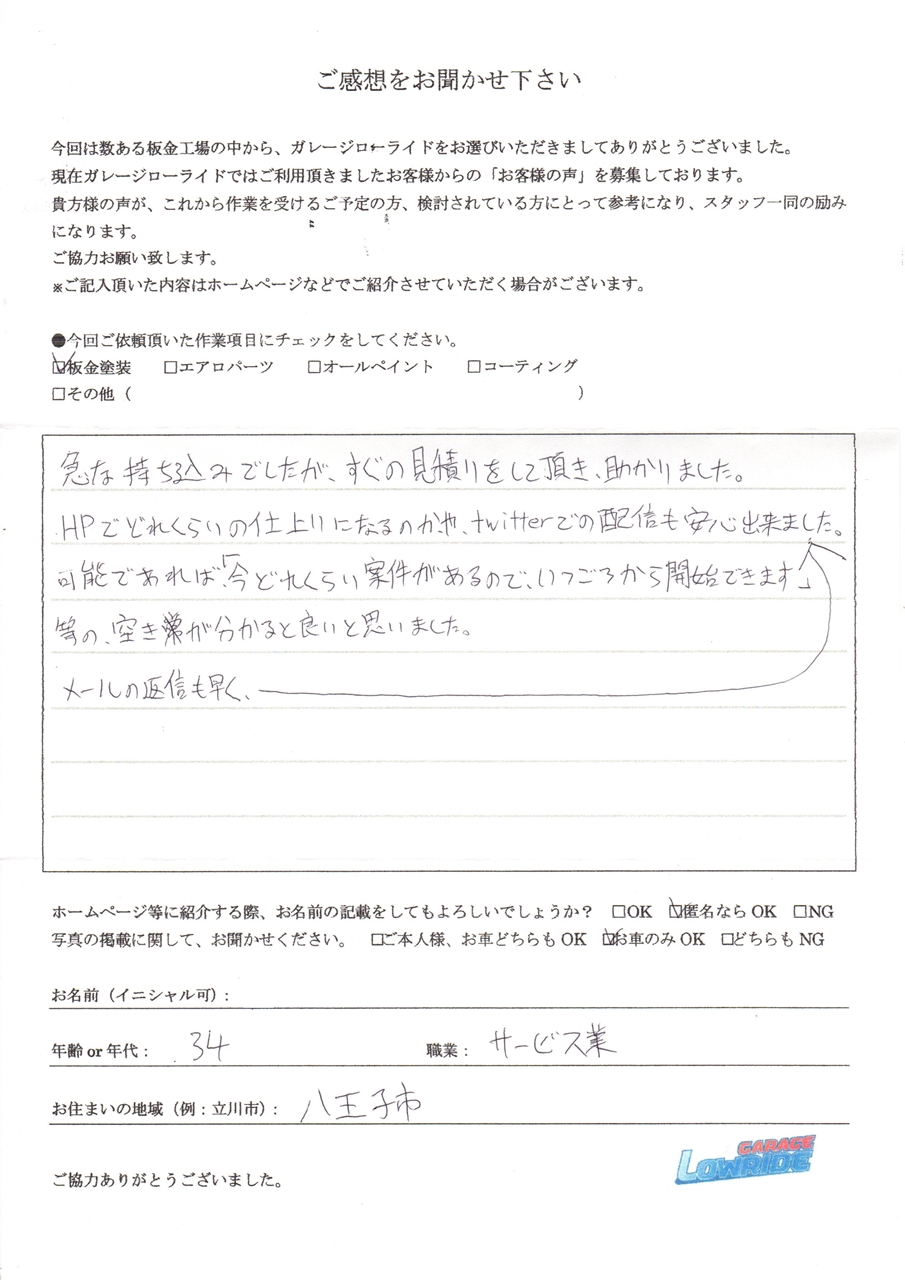 ご感想をお聞かせ下さい
今回は数ある板金工場の中から、ガレージローライドをお選びいただきましてありがとうございました。
現在ガレージローライドではご利用頂きましたお客様からの「お客様の声」を募集しております。
貴方様の声が、これから作業を受けるご予定の方、検討されている方にとって参考になり、スタッフ一同の励み
になります。
ご協力お願い致します。
※ご記入頂いた内容はホームページなどでご紹介させていただく場合がございます。
●今回ご依頼頂いた作業項目にチェックをしてください。
☑板金塗装 □エアロパーツ □オールペイント □コーティング
□その他（ ）
急な持ち込みでしたが、すぐの見積りをして頂き、助かりました。
HPでどれくらいの仕上りになるのかや、twitterでの配信も安心出来ました。
可能であれば、「今どれくらい案件があるので、いつごろから開始できます」
等の、空き が分かると良いと思いました。
メールの返信も早く、
ホームページ等に紹介する際、お名前の記載をしてもよろしいでしょうか？ □OK ☑匿名なら OK □NG
写真の掲載に関して、お聞かせください。 □ご本人様、お車どちらも OK ☑お車のみ OK □どちらも NG
お名前（イニシャル可）：
年齢 or 年代： 34 職業： サービス業
お住まいの地域（例：立川市）： 八王子市
GARAGE
LOWRIDE
ご協力ありがとうございました。